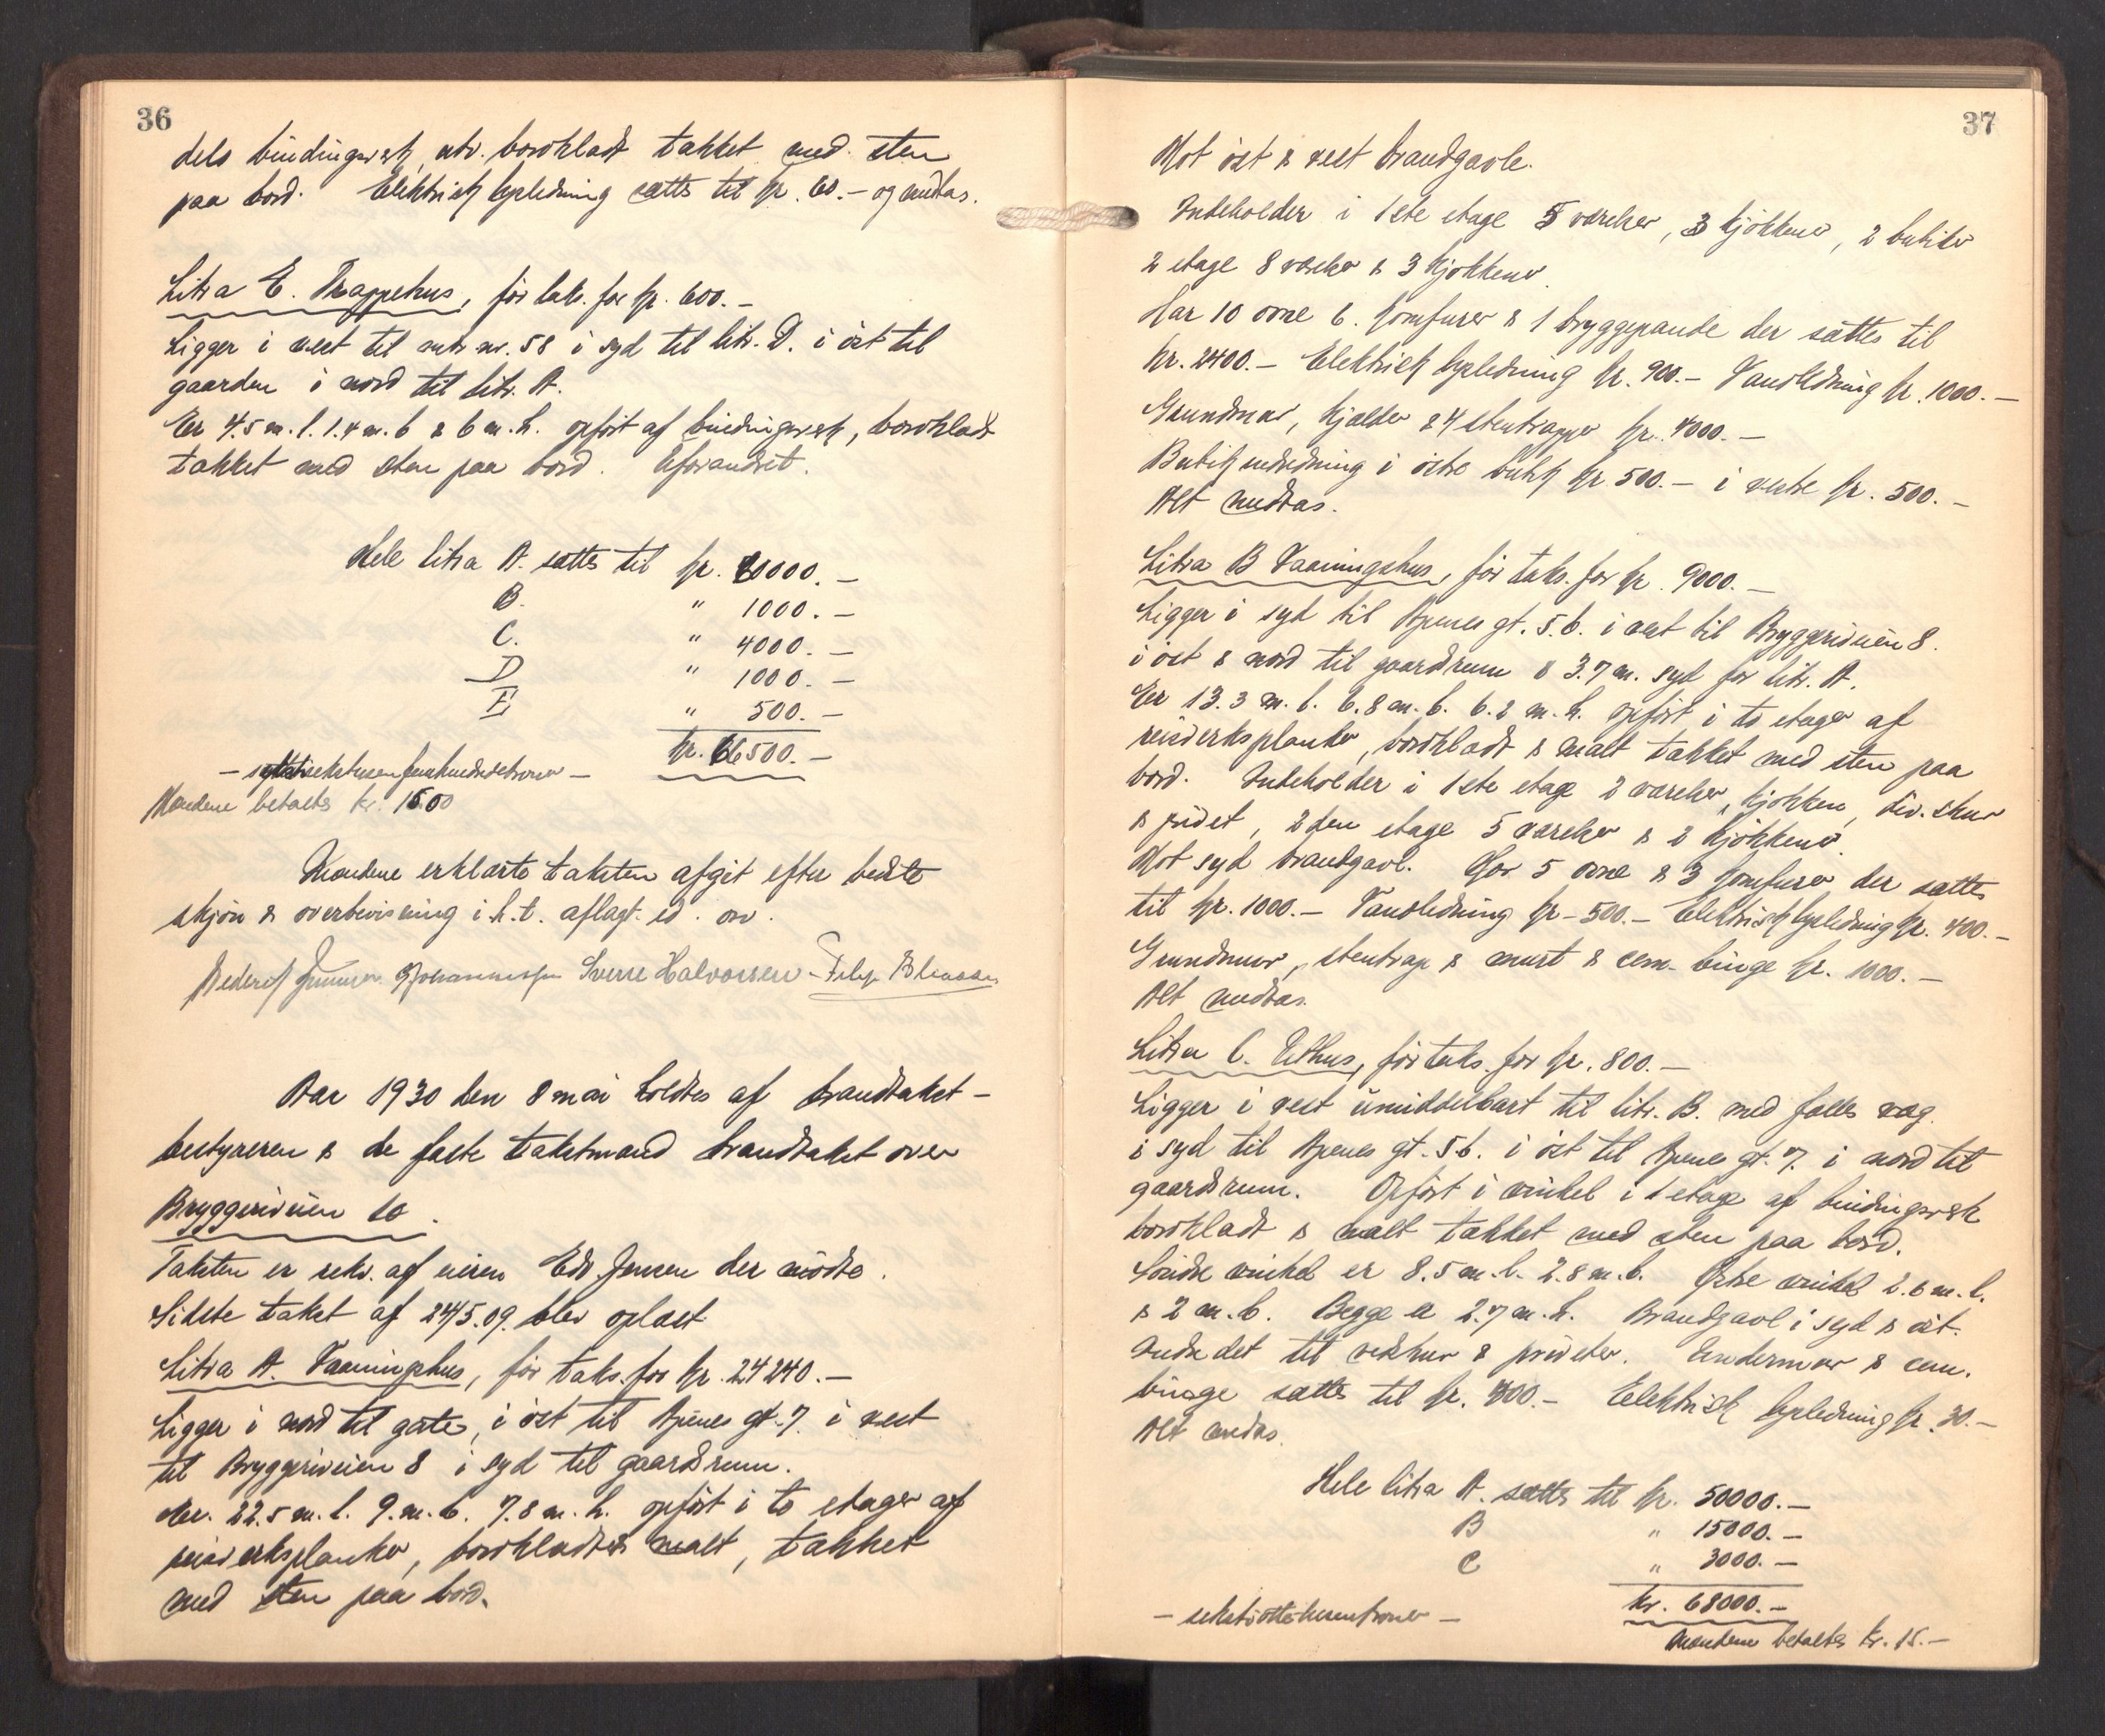 36
dels bindingsverk utv. bordklædt tækket med sten
paa bord. Elektrisk lysledning sættes til kr. 60.- og medtas.
Litra E. Trappehus, før taks. for kr. 600.-
Ligger i vest til mtr. nr. 58 i syd til litr. D. i øst til
gaarden i nord til litr. A.
Er 4.5 m. l. 1.4 m. b & 6 m. h. opført af bindingsverk, bordklædt
tækket med sten paa bord. Uforandret.
Hele litra A. sættes til kr. 60000.-
B. " 1000.-
C. " 4000.-
D " 1000.-
E " 500.-
kr. 66500.-
- sekstisekstusenfemhundredekroner -
Mændene betaltes kr. 15.00
Mændene erklærte taksten afgit efter bedste
skjøn & overbevisning i h. t. aflagt ed.
Johannessen Sverre Halvorsen
Aar 1930 den 8 mai holdtes af brandtakst-
bestyreren & de faste takstmænd brandtakst over
Bryggeriveien 10.
Taksten er rekv. af eieren Edv. Jensen der mødte.
Sidste takst af 24/5.09. blev oplæst
Litra A. Vaaningshus, før taks. for kr. 24240.-
Ligger i nord til gate, i øst til Apenes gt. 7. i vest
til Bryggeriveien 8 i syd til gaardsrum.
Er. 22.5 m. l. 9. m. b. 7.8 m. h. opført i to etager af
reisverksplanker, bordklædt & malt, tækket
med sten paa bord.
37
Mot øst & vest brandgavle.
Indeholder i 1ste etage 5 værelser, 3 kjøkkener, 2 butiker
2 etage 8 værelser & 3 kjøkkener.
Har 10 ovne 6. komfurer & 1 bryggepande der sættes til
kr. 2400.- Elektrisk lysledning kr. 900.- Vandledning kr. 1000.-
Grundmur, kjælder & 4 stentrapper kr. 4000.-
Butikindredning i østre butik kr 500.- i vestre kr. 500.-
Alt medtas.
Litra B Vaaningshus, før taks. for kr. 9000.-
Ligger i syd til Apenes gt. 5.b. i vest til Bryggeriveien 8.
i øst & nord til gaardsrum & 3.7 m. syd for litr. A.
Er 13.3 m. l. 6.8 m. b. 6.2 m. h. opført i to etager af
reisverksplanker, bordklædt & malt tækket med sten paa
bord. Indeholder i 1ste etage 2 værelser, kjøkken, div. skur
& privet, 2den etage 5 værelser & 2 kjøkkener.
Mot syd brandgavl. Har 5 ovne & 3 komfurer der sættes
til kr. 1000.- Vandledning kr - 500.- Elektrisk lysledning kr. 400.-
Grundmur, stentrap & murt & cem. binge kr. 1000.-
Alt medtas.
Litra C. Uthus, før taks. for kr. 800.-
Ligger i vest umiddelbart til litr. B. med fælles væg
i syd til Apenes gt. 5b. i øst til Apenes gt. 7. i nord til
gaardsrum. Opført i vinkel i 1 etage af bindingsverk
bordklædt & malt tækket med sten paa bord.
Søndre vinkel er 8.5 m. l. 2.8 m. b. Østre vinkel 2.6 m. l.
& 2 m. b. Begge er 2.7 m. h. Brandgavl i syd & øst.
Indredet til vedskur & priveter. Undermur & cem.
binge sættes til kr. 400.- Elektrisk lysledning kr. 30.-
Alt medtas.
Hele litra A. sættes til kr. 50000.-
B " 15000.-
C " 3000.-
kr. 68000.-
- sekstiottetusenkroner -
Mændene betaltes kr. 15.-